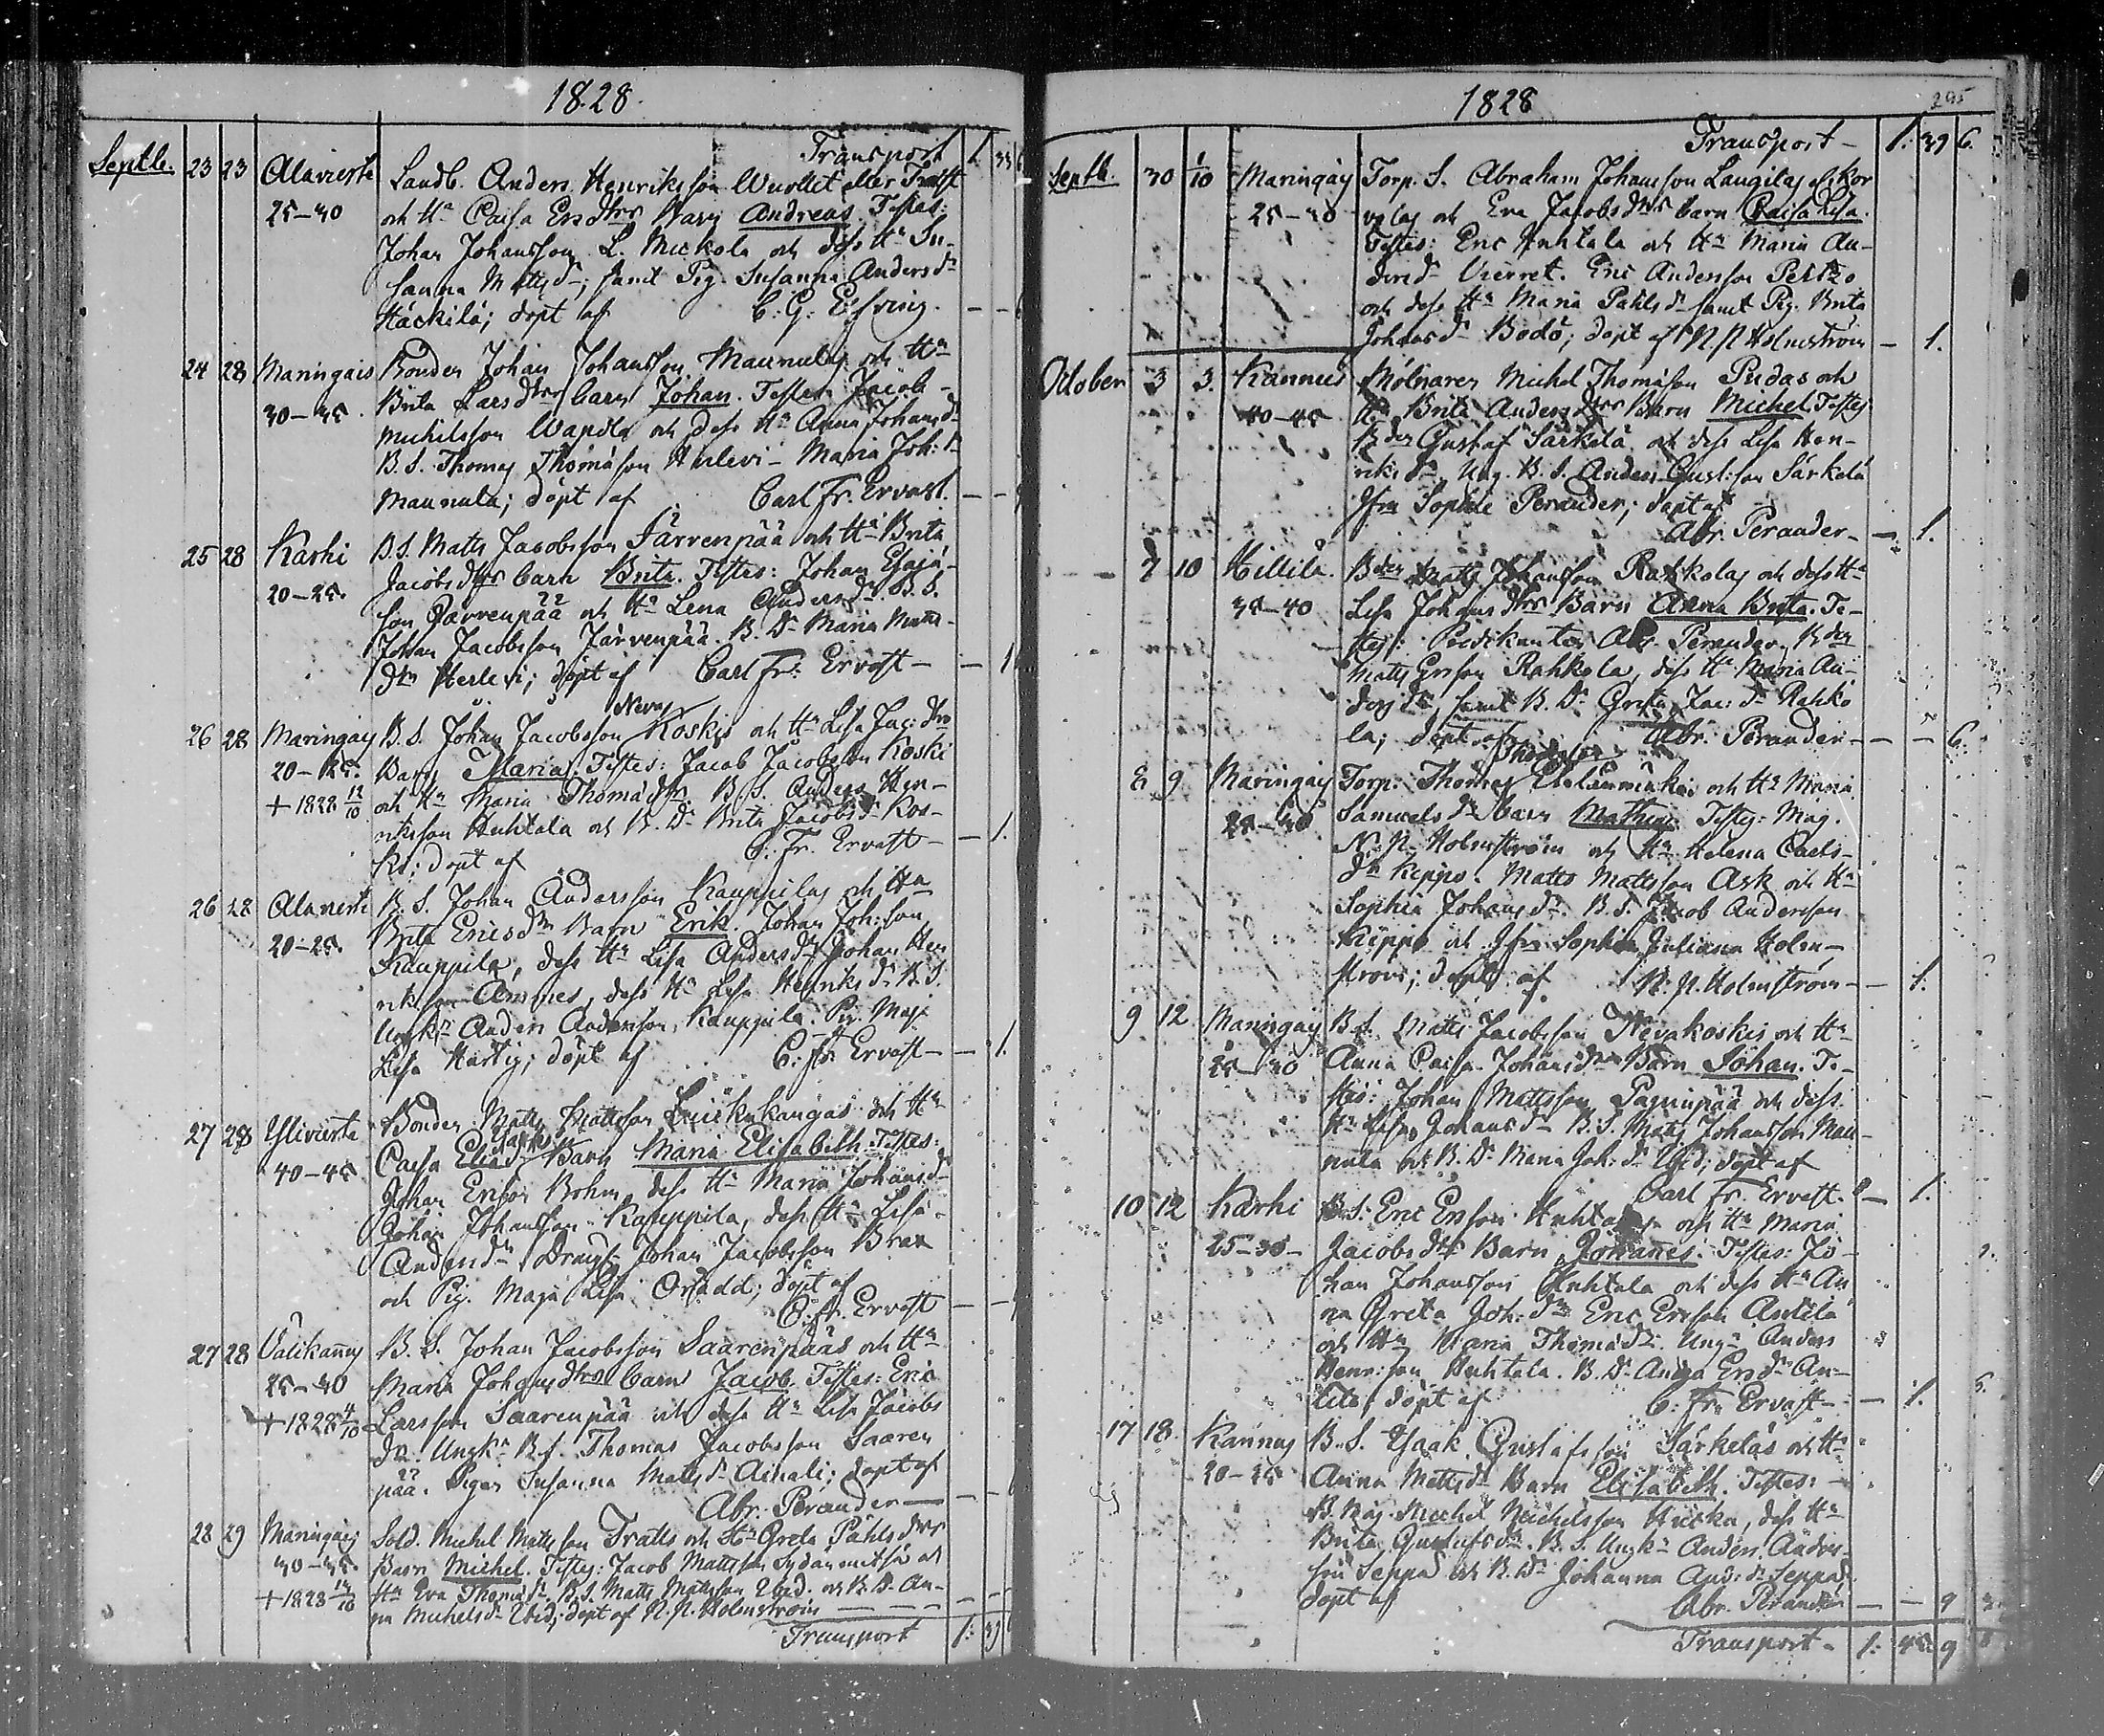 1828.
Transport 1. 33 6
Septb. 23 23 Alavierte Landb. Anders Henriksson Wuollet eller Trast
25-30 och Hu Caisa Ersdtrs Barn Andreas. Testes:
Johan Johansson L. Mickola och dess Hu Su-
sanna Mattsdr; samt Pig. Susanna Andersdr
Häckilä; döpt af C. G. Elfving.
24 28 Maringais Bonden Johan Johansson Maunulas och Hu
30-35. Brita Larsdtrs barn Johan. Testes: Jacob
Michelsson Wapola och dess Hu Anna Johansdr
B.S. Thomas Thomasson Herlevi - Maria Joh:dr
Maunula; döpt af Carl Fr. Ervast.
25 28 Karhi B.S. Matts Jacobsson Järvenpää och Hu Brita
20-25. Jacobsdtrs barn Brita. Testes: Johan Esaja-
son Järvenpää och Hu Lena Andersdr B.S.
Johan Jacobsson Järvenpää. B.Dr Maria Matts-
dtr Herlevi; döpt af Carl Fr: Ervast - 1
Neva
26 28 Maringais B.S. Johan Jacobsson Koskis och Hu Lisa Jac: dtrs
20-25. Barn Maria. Testes: Jacob Jacobsson Koski
+ 1828 12/10 och Hu Maria Thomasdtr B.S. Anders Hen-
riksson Huhtala och B.Dr Brita Jacobsdr Kos-
ki; döpt af C. Fr. Ervast - 1.
26 28 Alavierte B.S. Johan Andersson Kauppilas och Hu
20-25. Brita Ericsdtrs Barn Erik. Johan Joh:son
Kauppila, dess Hu Lisa Andersdr Johan Hen
riksson Ammes, dess Hu Lisa Henriksdr B.S.
Ungkn Anders Andersson Kauppila. Pig. Maja
Lisa Hartig; döpt af C. Fr Ervast - 1.
27 28 Ylivierte Bonden Matts Mattsson Kangas och Hu
40-45 Caisa Barn Maria Elisabeth. Testes:
Johan Ersson Bohm, dess Hu Maria Johansdr
Johan Johansson Kauppila, dess Hu Lisa
Andersdr Johan Jacobsson Brax
och Pig. Maja Lisa döpt af
C. Fr. Ervast
27 28 Välikannus B.S. Johan Jacobsson Saarenpääs och Hu
25-30 Maria Johansdtrs barn Jacob. Testes: Eric
+ 1828 4/10 Larsson Saarenpää och dess Hu Lisa Jacobs
dr. Ungkn B.S. Thomas Jacobsson Saaren
pää. Pigan Susanna Mattsdr Ainali; döpt af
Abr. Perander
28 29 Maringais Sold. Michel Mattsson Tratts och Hu Greta Påhlsdtrs
30-35. Barn Michel. Testes: Jacob Mattsson Sydänmetsä och
+ 1828 14/10 Hu Eva Thomasdr B.S. Matts Mattsson Ibid. och B.Dr An-
na Michelsdr Ibid; döpt af N.N. Holmström
Transport 1: 39
1828
295
Transport - 1. 39 6.
Septb. 30 1/10 Maringais Torp. S. Abraham Johansson Laugilas
25-30 och Eva Jacobsdtrs barn Caisa Lisa.
Testes: Eric Huhtala och Hu Maria An-
dersdr Vierret. Eric Andersson Pekko
och dess Hu Maria Påhlsdr samt Pig. Brita
Johansdr Bodö; döpt af N N Holmström - 1.
October 3 3. Kannus Mölnaren Michel Thomasson Pudas och
40-45 Hu Brita Andersdtrs Barn Michel. Testes
Bden Gustaf Särkelä och dess Lisa Hen-
riksdr. Ung. B.S. Anders Gust:son Särkelä
Jfru Sophie Perander; döpt af
Abr. Perander - 1.
7 10 Hillilä. Bden Matts Johansson Rahkolas och dess Hu
35-40 Lisa Johansdtrs Barn Anna Brita. Te-
stes: Predikanten Abr. Perander, Bden
Matts Ersson Rahkola, dess Hu Maria An-
dersdr, samt B.Dr Greta Jac: dr Rahko
la; döpt af Abr. Perander - - 6.
8 9 Maringais Torp. Thomas och Hu Maria
25-30 Samuelsdr barn Mathias. Testes: Mag.
N. N. Holmström och Hu Helena Carls-
dr Keppo. Matts Mattsson Ask och Hu
Sophia Johansdr. B.S. Jacob Andersson
Keppo och Jfru Sophia Juliana Holm-
ström; döpt af N. N. Holmström - 1.
9 12. Maringais B.S. Matts Jacobsson Nevakoskis och Hu
25-30 Anna Caisa Johansdrs Barn Johan. Te-
stes: Johan Mattsson och dess
Hu Lisa Johansdr B.S. Matts Johansson Mau-
nula och B.Dr Maria Joh: dr Ibid; döpt af
Carl Fr. Ervast. - 1.
10 12 Karhi B.S. Eric Ersson Huhtala och Hu Maria
25-30 - Jacobsdtrs Barn Johannes. Testes: Jo-
han Johansson Huhtala och dess Hu An
na Greta Joh: dr Eric Ersson Anttila
och Hu Maria Thomasdr. Ungn Anders
Henr:son Huhtala. B.Dr Anna Ersdr An-
tila döpt af C. Fr. Ervast - 1.
17 18. Kannus B.S. Isaak Gustafsson Särkeläs och Hu
20-25 Anna Mattsdr Barn Elisabeth. Testes:
Michel Michelsson dess Hu
Brita Gustafsdr. B.S. Ungkn Anders Anders-
son Seppä och B.Dr Johanna And: dr Seppä
döpt af Abr. Perander - - 9
Transport - 1: 45. 9